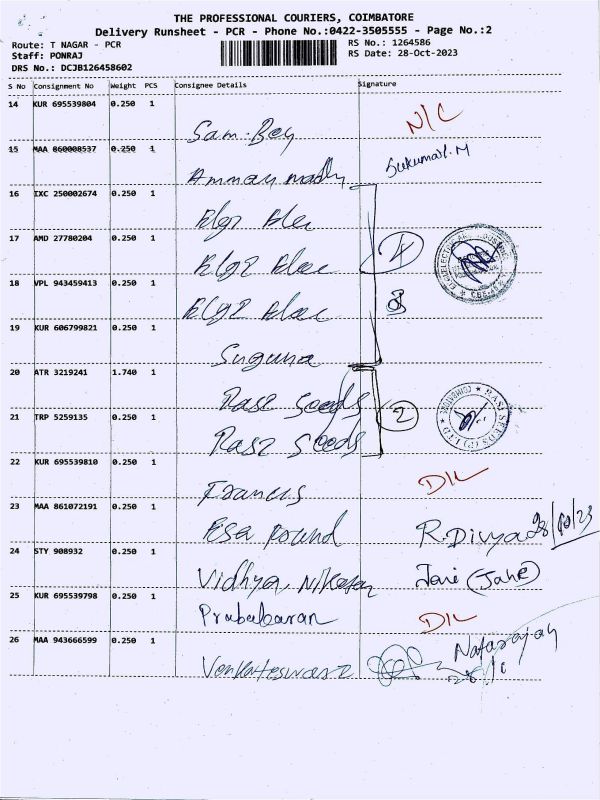 THE PROFESSIONAL COURIERS, COIMBATORE
Delivery Runsheet - PCR - Phone No.:0422-3505555 - Page No.:2
Route: T NAGAR - PCR
RS No.: 1264586
Staff: PONRAJ
RS Date: 28-Oct-2023
DRS No.: DCJB126458602
S No Consignment No Weight PCS Consignee Details Signature
14 KUR 695539804 0.250 1
N/C
Sam. Boy
15 MAA 860008537 0.250 1
Sukumar. M
Amman
16 IXC 250002674 0.250 1
Elgi Elec
17 AMD 27780204 0.250 1
4
Elgi Elec
18 VPL 943459413 0.250 1
Elgi Elec
19 KUR 606799821 0.250 1
Suguna
20 ATR 3219241 1.740 1
Rasi Seeds
2
RASI SEEDS (P) LTD
COIMBATORE
21 TRP 5259135 0.250 1
Rasi Seeds
22 KUR 695539810 0.250 1
D/L
Francis
23 MAA 861072191 0.250 1
R. Divya 28/10/23
Round
24 STY 908932 0.250 1
Vidhya Nikethan
Jani (Jane)
25 KUR 695539798 0.250 1
Prabakaran
D/L
26 MAA 943666599 0.250 1
Natarajan
Venkateswara